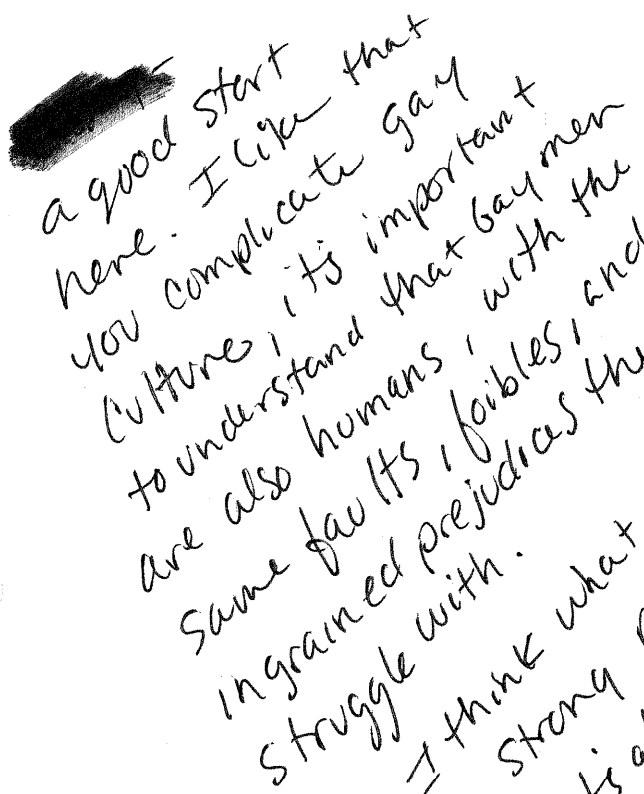 a good start
here. I like that
you complicate gay
culture, it's important
to understand that Gay men
are also humans, with the
same faults, foibles, and
ingrained prejudices the
struggle with.
I think what
strong